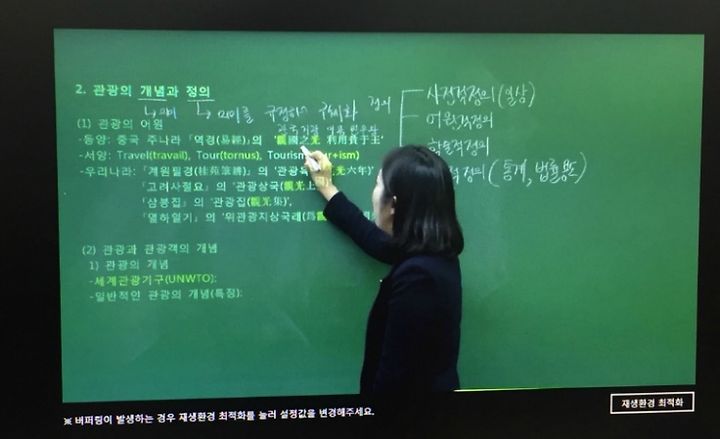 2. 관광의 개념과 정의
의미를 규정하여 구체화 정의
사전적정의(일상)
어원적정의
학술적정의
적정의(통계, 법률용도)
(1) 관광의 어원
-동양: 중국 주나라 「역경(易經)」의 '觀國之光 利用賓于王'
-서양: Travel(travail), Tour(tornus), Tourism +ism)
-우리나라: 「계원필경(桂苑筆耕)」의 '관광 光六年)'
「고려사절요」의 '관광상국(觀光上
「삼봉집」의 '관광집(觀光集)',
「열하일기」의 '위관광지상국래(爲觀
(2) 관광과 관광객의 개념
1) 관광의 개념
-세계관광기구(UNWTO):
-일반적인 관광의 개념(특징):
※ 버퍼링이 발생하는 경우 재생환경 최적화를 눌러 설정값을 변경해주세요.
재생환경 최적화